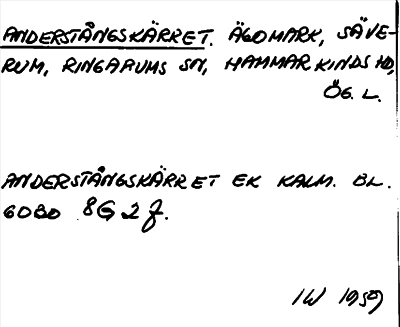 ANDERSTÅNGSKÄRRET. ÄGOMARK, SÄVE-
RUM, RINGARUMS SN, HAMMARKINDS HD,
ÖG. L.
ANDERSTÅNGSKÄRRET EK KALM. BL.
6080 8G 2 f.
IW 1959